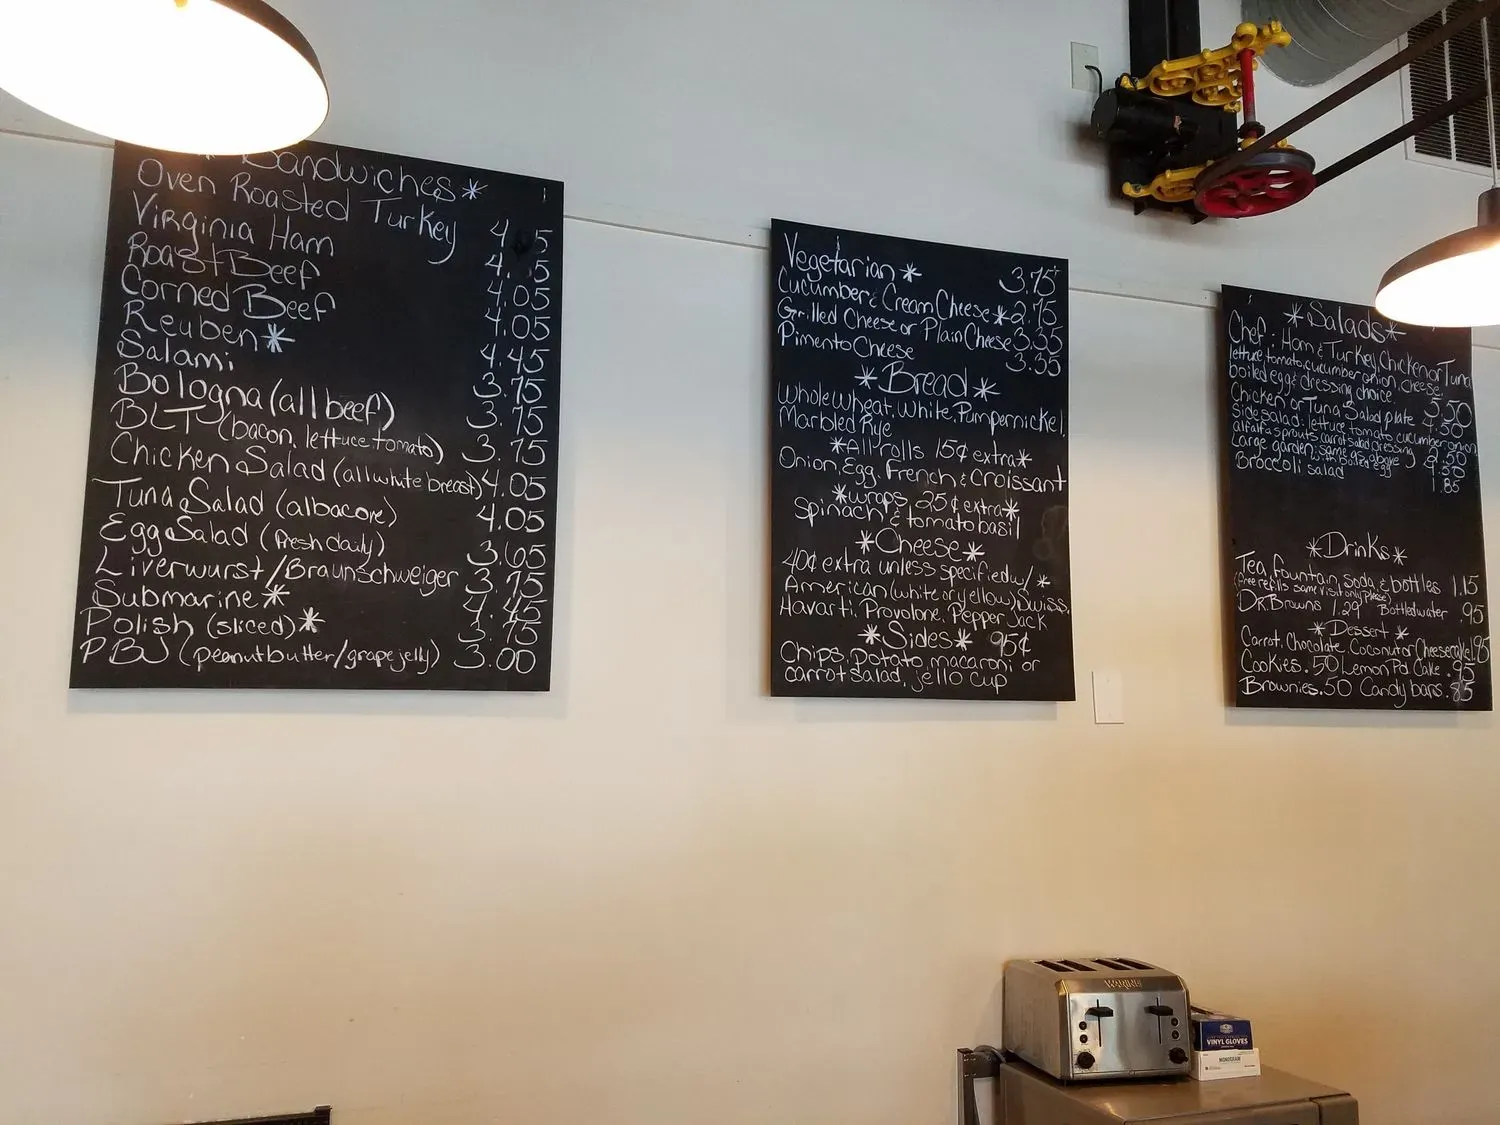 Sandwiches*
Oven Roasted Turkey
Virginia Ham
Roast Beef 4.05
Corned Beef 4.05
Reuben* 4.45
Salami 3.75
Bologna (all beef) 3.75
BLT (bacon, lettuce, tomato) 3.75
Chicken Salad (all white breast) 4.05
Tuna Salad (albacore) 4.05
Egg Salad (fresh daily) 3.65
Liverwurst/Braunschweiger 3.75
Submarine* 4.45
Polish (sliced)* 3.75
PBJ (peanut butter/grape jelly) 3.00
Vegetarian* 3.75
Cucumber & Cream Cheese* 2.75
Grilled Cheese or Plain Cheese 3.35
Pimento Cheese 3.35
*Bread*
Whole Wheat, White, Pumpernickel,
Marbled Rye
*All rolls 15¢ extra*
Onion, Egg, French & Croissant
*wraps 25¢ extra*
Spinach & tomato basil
*Cheese*
40¢ extra unless specified w/*
American (white or yellow) Swiss,
Havarti, Provolone, Pepper Jack
*Sides* 95¢
Chips, potato, macaroni or
carrot salad, jello cup
*Salads*
Chef: Ham & Turkey, Chicken or Tuna
lettuce, tomato, cucumber, onion, cheese,
boiled egg & dressing choice 5.50
Chicken or Tuna Salad plate 4.50
Side salad: lettuce tomato cucumber onion
alfalfa sprouts carrot salad dressing 2.50
Large garden, same as above 4.50
with boiled egg
Broccoli salad 1.85
*Drinks*
Tea, fountain, soda, & bottles 1.15
(free refills same visit only please)
Dr. Browns 1.29 Bottled water .95
*Dessert*
Carrot, Chocolate, Coconut or Cheesecake 1.95
Cookies .50 Lemon Pd Cake .95
Brownies .50 Candy bars .85
WARING
VINYL GLOVES
MONOGRAM